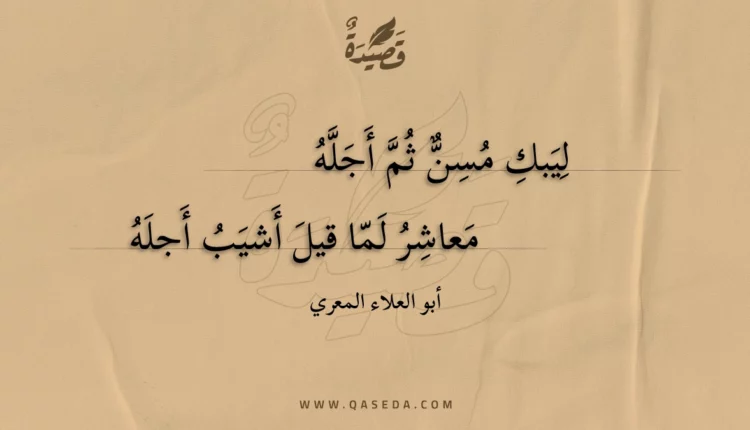 قَصِيْدَةٌ
لِيَبكِ مُسِنٌّ ثُمَّ أَجَلَّهُ
مَعاشِرُ لَمّا قيلَ أَشيَبُ أَجلَهُ
أبو العلاء المعري
WWW.QASEDA.COM